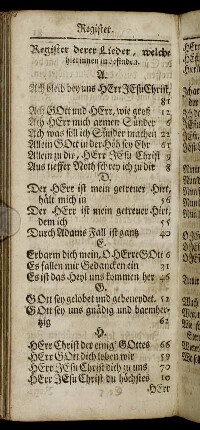 Register.
Register derer Lieder, welche
hierinnen zu befinden.
A.
Ach bleib bey uns HErr JEsu Christ,
81
Ach GOtt und HErr, wie groß 12
Ach HErr mich armen Sünder 6
Ach was soll ich Sünder machen 21
Allein GOtt in der Höh sey Ehr 61
Allein zu dir, HErr JEsu Christ 9
Aus tieffer Noth schrey ich zu dir 8
D.
Der HErr ist mein getreuer Hirt,
hält mich in 56
Der HErr ist mein getreuer Hirt,
dem ich 55
Durch Adams Fall ist gantz 40
E.
Erbarm dich mein, O HErre GOtt 6
Es fallen mir Gedancken ein 31
Es ist das Heyl uns kommen her 46
G.
GOtt sey gelobet und gebenedeyet. 52
GOtt sey uns gnädig und barmher-
tzig 62
H.
HErr Christ der einig' GOttes 66
HErr GOtt dich loben wir 59
HErr JEsu Christ dich zu uns 70
HErr JEsu Christ du höchstes 10
HErr